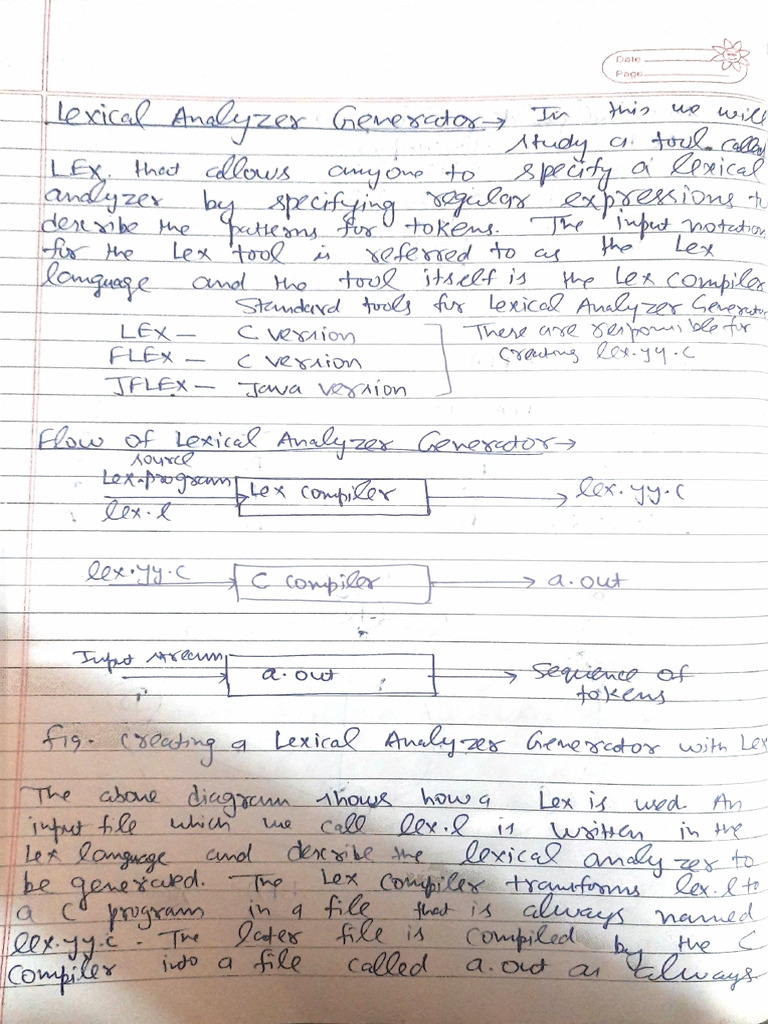 Date
Page
Lexical Analyzer Generator → In this we will
study a tool called
LEX. that allows anyone to specify a lexical
analyzer by specifying regular expressions to
describe the patterns for tokens. The input notation
for the Lex tool is referred to as the Lex
language and the tool itself is the Lex compiler
Standard tools for Lexical Analyzer Generator
LEX — C version
These are responsible for
FLEX — C version
creating lex.yy.c
JFLEX — Java version
Flow of Lexical Analyzer Generator →
source
Lex.program
Lex compiler
lex.yy.c
lex.l
lex.yy.c
C compiler
a.out
Input stream
a.out
Sequence of
tokens
fig. Creating a Lexical Analyzer Generator with Lex
The above diagram shows how a Lex is used. An
input file which we call lex.l is written in the
Lex language and describe the lexical analyzer to
be generated. The Lex compiler transforms lex.l to
a C program in a file that is always named
lex.yy.c. The later file is compiled by the C
Compiler into a file called a.out as always